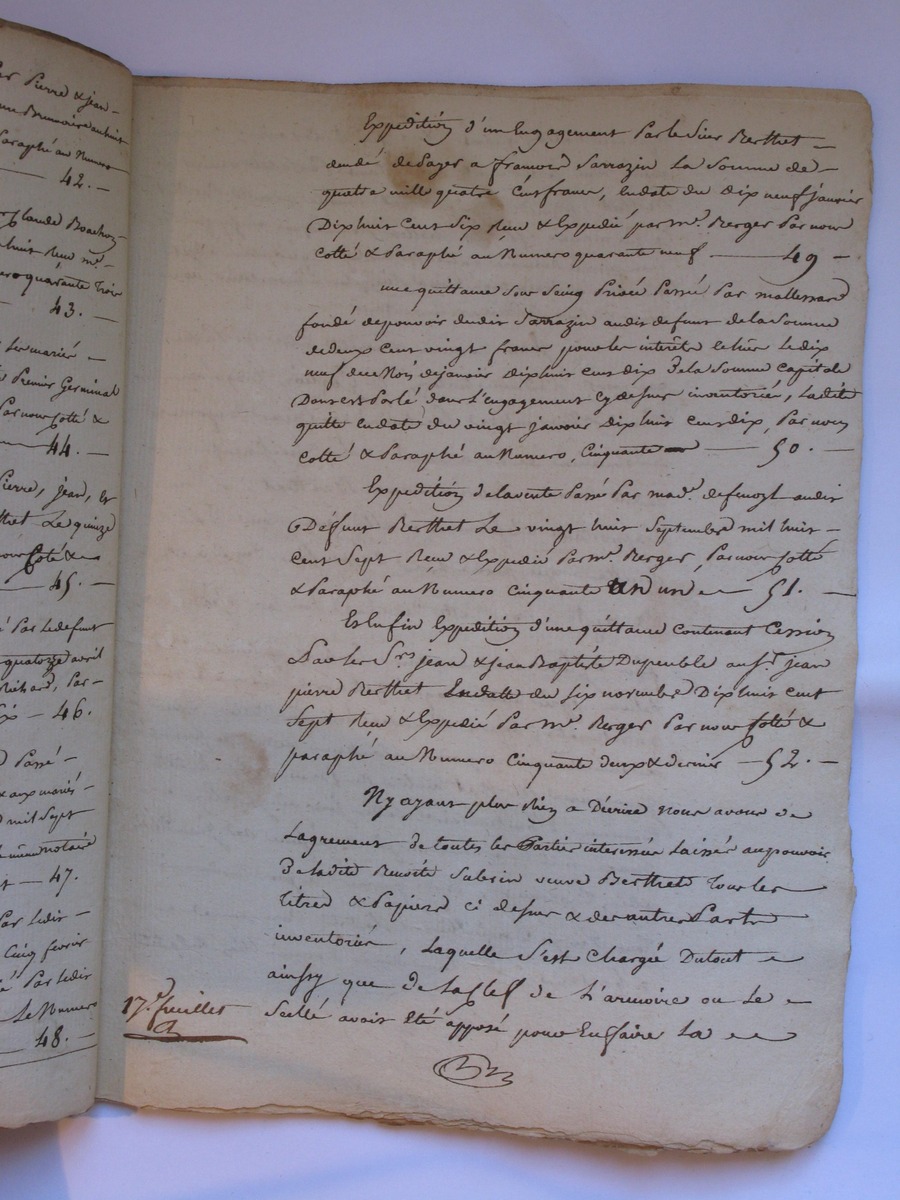 Pierre & jean
Brumaire an huit
Paraphé au Numero
42.
Claude
huit Reçu me.
quarante trois
43.
les mariés
Premier Germinal
Par nous Cotté &
44.
Pierre, jean, et
Le quinze
Cotté &
45.
Par Le defunt
quatorze avril
Richard, Par
46.
Passé
& aux mariés
mil Sept
notaire
47.
Par ledit
Cinq fevrier
Par ledit
Le Numero
48.
Expedition d'un Engagement Par le Sieur Berthet
de Payer a francois Sarrazin La Somme de
quatre mille quatre Cent francs, En date du dix neuf janvier
Dix huit Cent Six Reçu & Expedié par me. Berger Par nous
cotté & Paraphé au Numero quarante neuf 49
une quittance Sous Seing Privée Passé Par
fondé de pouvoir dudit Sarrazin audit defunt de la Somme
de deux Cent vingt francs pour les interêts le dix
neuf du Mois de janvier dix huit Cent dix de la Somme Capitale
Dont est Parlé dans L'engagement Cy dessus inventorié, Ladite
quitte. En date du vingt janvier Dix huit Cent dix, Par nous
cotté & Paraphé au Numero, Cinquante 50.
Expedition de la vente Passé Par made. audit
Défunt Berthet Le vingt huit Septembre mil huit
Cent Sept Reçu & Expedié Par me. Berger, Par nous Cotté
& Paraphé au Numero Cinquante un un 51.
Et Enfin Expedition d'une quittance Contenant Cession
Par les Srs jean & jean Baptiste au Sr. jean
pierre Berthet En datte du Six novembre Dix huit Cent
Sept Reçu & Expedié Par me. Berger Par nous Cotté &
paraphé au Numero Cinquante deux & dernier 52.
N'y ayant plus Rien a Décrire nous avons de
Lagrement de toutes les Parties interessées Laissé au pouvoir
de ladite Benoite veuve Berthet Tous les
titres & Papiers ci dessus & des autres Parts
inventoriés, Laquelle S'est Chargée Du tout
ainssy que de La Clef de L'armoire ou Le
Scellé avoit Eté apposé pour En faire La
17e. feuillet